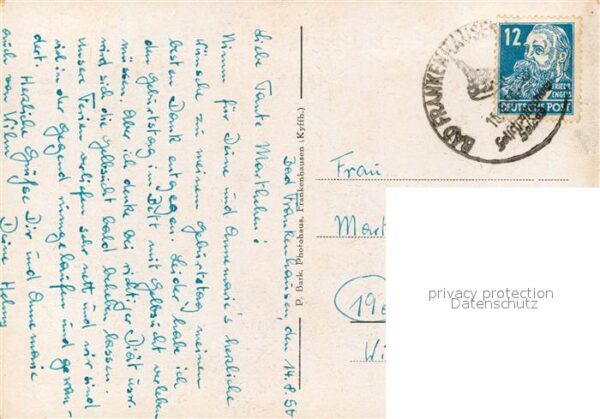 Bad Frankenhausen, den 14.8.50
Liebe Tante Marthchen!
Nimm für Deine und Annemarie's herzliche
Wünsche zu meinem Geburtstag meinen
besten Dank entgegen. Leider habe ich
den Geburtstag im Bett mit Gelbsucht verleben
müssen. Aber ich denke bei richtiger Diät usw.
wird sich die Gelbsucht bald beheben lassen.
Unsere Ferien verliefen sehr nett und wir sind
viel in der Gegend rumgelaufen und gewan-
dert. Herzliche Grüße Dir und Annemarie
auch von
Deine
P. Bark, Photohaus, Frankenhausen (Kyffh.)
BAD FRANKENHAUSEN
12
FRIEDR.
ENGELS
DEUTSCHE POST
Frau
Mart
(19
Wi
privacy protection
Datenschutz